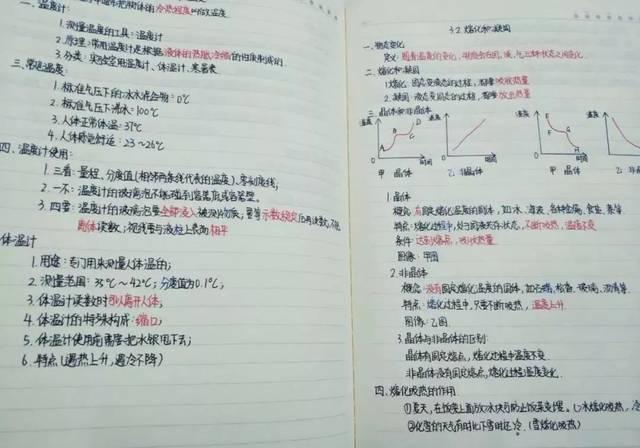 二、温度计:
1.测量温度的工具:温度计
2.原理:常用温度计是根据液体的热胀冷缩的性质制成的.
3.分类:实验室用温度计、体温计、寒暑表
三.常见温度:
1.标准气压下的冰水混合物:0℃
2.标准气压下沸水=100℃
3.人体正常体温:37℃
4.人体感觉舒适:23~26℃
四、温度计使用:
1.三看:量程,分度值(相邻两条线代表的温度)、零刻度线;
2.一不:温度计的玻璃泡不能碰到容器底或容器壁.
3.四要:温度计的玻璃泡要全部浸入被测物质;要等示数稳定后再读数,不能
读数;视线要与液柱上表面相平
体温计
1.用途:专门用来测量人体温的;
2.测量范围:35℃~42℃;分度值为0.1℃;
3.体温计读数时可以离开人体,
4.体温计的特殊构成:缩口;
5.体温计使用前需要把水银甩下去;
6.特点(遇热上升,遇冷不降)
3.2 熔化和凝固
一.物态变化
定义:随着温度的变化,物质会在固、液、气三种状态之间变化.
二.熔化和凝固
1.熔化:固态变液态的过程,需要吸收热量
2.凝固:液态变固态的过程,需要放出热量
三.晶体和非晶体
温度 温度 温度 温度
A B C D E F G H
0 时间 0 时间 0 时间
甲 晶体 乙 非晶体 甲 晶体 乙 非
1.晶体
概念:有固定熔化温度的固体,如冰、海波、各种金属、食盐、萘等.
特点:熔化过程中,处于固液共存状态,不断吸热,温度不变
条件:达到熔点,吸收热量
图像:甲图
2.非晶体
概念:没有固定熔化温度的固体,如石蜡,松香、玻璃、沥青等.
特点:熔化过程中,只要不断吸热,温度上升.
图像:乙图
3.晶体与非晶体的区别:
晶体有固定熔点,熔化过程中温度不变.
非晶体没有固定熔点,熔化过程温度变化.
四.熔化吸热的作用
①夏天,在饭菜上面放冰块可防止饭菜变馊.(冰熔化吸热,冷
②化雪的天气有时比下雪时还冷.(雪熔化吸热)